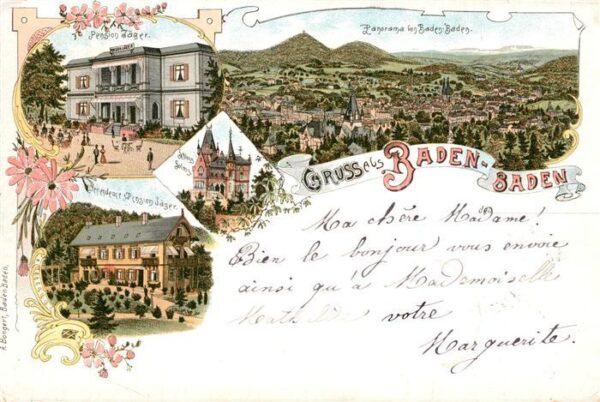 Pension Jäger.
Panorama von Baden-Baden.
Schloss
Solms
Dependence Pension Jäger.
GRUSS aus BADEN-BADEN
Ma chère Madame!
Bien le bonjour vous envoie
ainsi qu'à Mademoiselle
Mathilde votre
Marguerite.
Bongert, Baden-Baden.